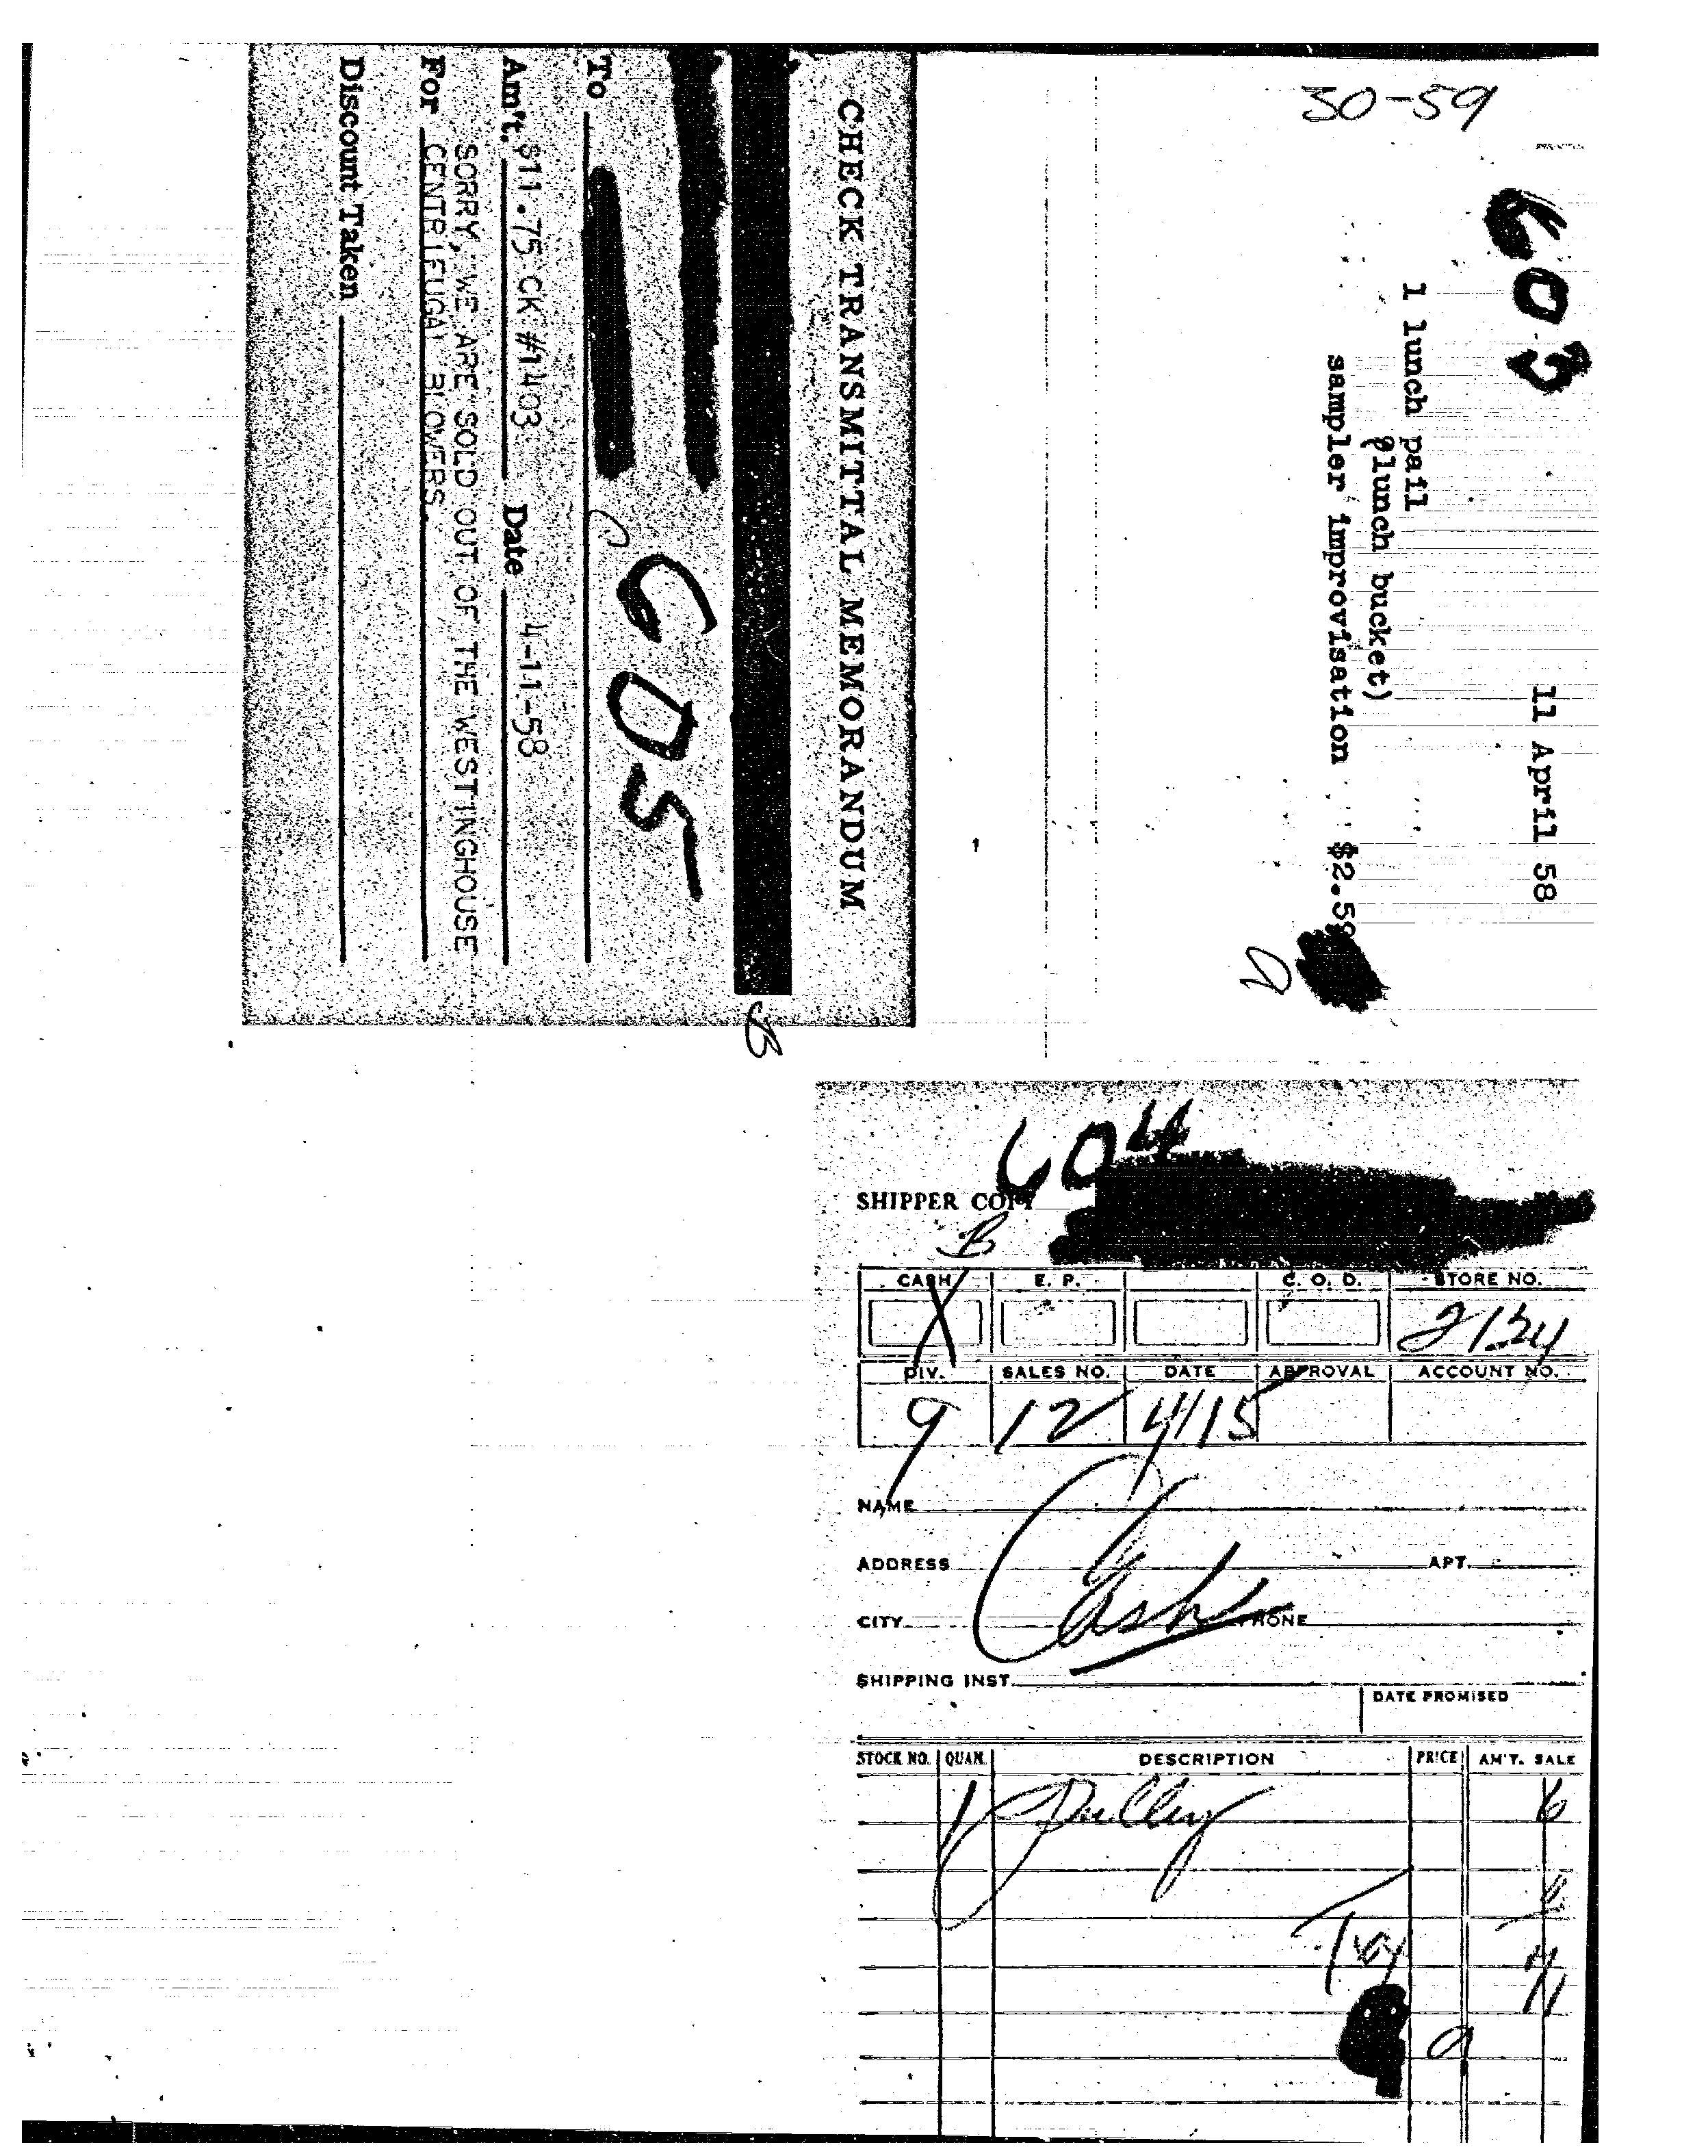 30-59
603
11 April 58
1 lunch pail
(lunch bucket)
sampler improvisation $2.59
a
CHECK TRANSMITTAL MEMORANDUM
B
605
To
Am't. $11.75 CK #1403 Date 4-11-58
SORRY, WE ARE SOLD OUT OF THE WESTINGHOUSE
For CENTRIFUGAL BLOWERS.
Discount Taken
604
SHIPPER COPY
B
CASH E. P. C. O. D. STORE NO.
X 2134
DIV. SALES NO. DATE APPROVAL ACCOUNT NO.
9 12 4/15
NAME
ADDRESS APT.
Cash
CITY PHONE
SHIPPING INST.
DATE PROMISED
STOCK NO. QUAN. DESCRIPTION PRICE AM'T. SALE
1 Pulley
Tax
a